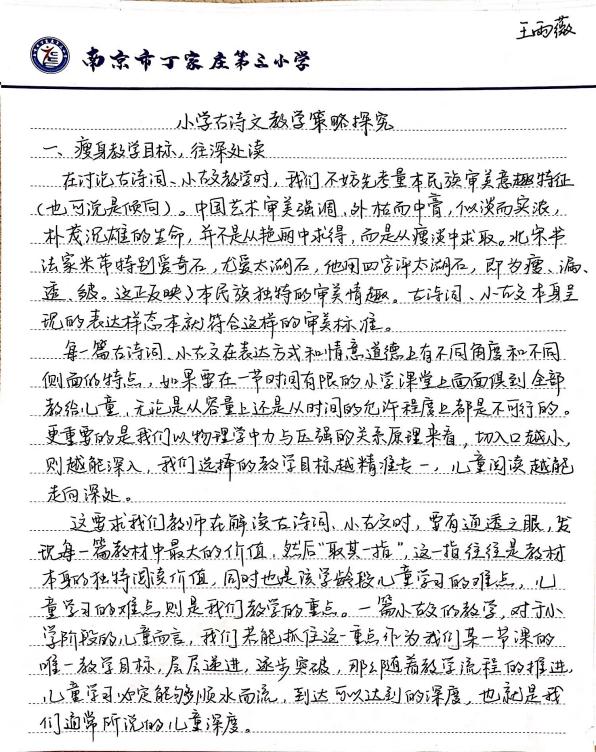 王雨薇
南京市丁家庄第三小学
小学古诗文教学策略探究
一、瘦身教学目标，往深处读
在讨论古诗词、小古文教学时，我们不妨先考量本民族审美意趣特征
（也可说是倾向）。中国艺术审美强调，外枯而中膏，似淡而实浓，
朴茂沉雄的生命，并不是从艳丽中求得，而是从瘦淡中求取。北宋书
法家米芾特别爱奇石，尤爱太湖石，他用四字评太湖石，即为瘦、漏、
透、皱。这正反映了本民族独特的审美情趣。古诗词、小古文本身呈
现的表达样态本就符合这样的审美标准。
每一篇古诗词、小古文在表达方式和情意道德上有不同角度和不同
侧面的特点，如果要在一节时间有限的小学课堂上面面俱到全部
教给儿童，无论是从容量上还是从时间的允许程度上都是不可行的。
更重要的是我们以物理学中力与压强的关系原理来看，切入口越小，
则越能深入，我们选择的教学目标越精准专一，儿童阅读越能
走向深处。
这要求我们教师在解读古诗词、小古文时，要有通透之眼，发
现每一篇教材中最大的价值，然后“取其一指”，这一指往往是教材
本身的独特阅读价值，同时也是该学龄段儿童学习的难点，儿
童学习的难点则是我们教学的重点。一篇小古文的教学，对于小
学阶段的儿童而言，我们若能抓住这一重点作为我们某一节课的
唯一教学目标，层层递进，逐步突破，那么随着教学流程的推进，
儿童学习必定能够顺水而流，到达可以达到的深度，也就是我
们通常所说的儿童深度。